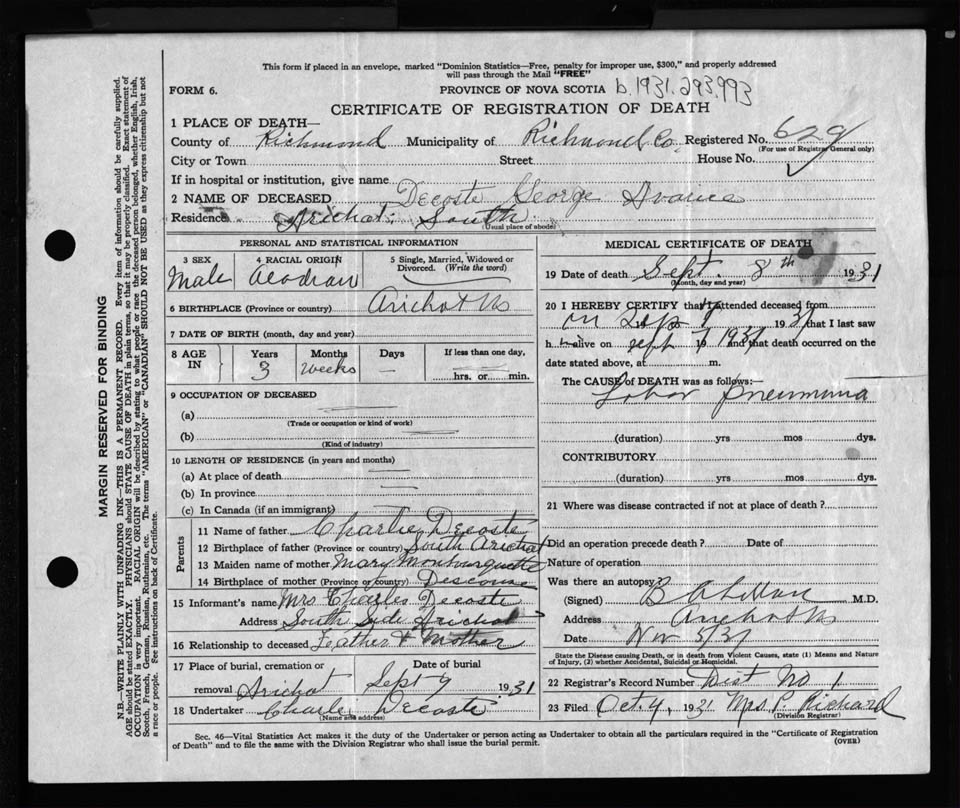 This form if placed in an envelope, marked "Dominion Statistics—Free, penalty for improper use, $300," and properly addressed
will pass through the Mail "FREE"
FORM 6.
PROVINCE OF NOVA SCOTIA b.1931.293.993
CERTIFICATE OF REGISTRATION OF DEATH
1 PLACE OF DEATH—
County of Richmond Municipality of Richmond Co. Registered No. 629
(For use of Registrar General only)
City or Town Street House No.
If in hospital or institution, give name
2 NAME OF DECEASED Decoste George
Residence Arichat South
(Usual place of abode)
PERSONAL AND STATISTICAL INFORMATION
3 SEX 4 RACIAL ORIGIN 5 Single, Married, Widowed or Divorced. (Write the word)
Male Acadian
6 BIRTHPLACE (Province or country) Arichat NS
7 DATE OF BIRTH (month, day and year)
8 AGE IN Years Months Days If less than one day,
3 weeks — hrs. or min.
9 OCCUPATION OF DECEASED
(a)
(Trade or occupation or kind of work)
(b)
(Kind of industry)
10 LENGTH OF RESIDENCE (in years and months)
(a) At place of death
(b) In province
(c) In Canada (if an immigrant)
Parents
11 Name of father Charlie Decoste
12 Birthplace of father (Province or country) South Arichat
13 Maiden name of mother Mary
14 Birthplace of mother (Province or country)
15 Informant's name Mrs Charles Decoste
Address South Side Arichat
16 Relationship to deceased Father & Mother
17 Place of burial, cremation or removal Arichat Date of burial Sept 9 1931
18 Undertaker Charlie Decoste
(Name and address)
MEDICAL CERTIFICATE OF DEATH
19 Date of death Sept. 8th 1931
(Month, day and year)
20 I HEREBY CERTIFY that I attended deceased from
on Sep 7 1931 that I last saw
h alive on Sept 7 1931 and that death occurred on the
date stated above, at m.
The CAUSE of DEATH was as follows:—
Lobar Pneumonia
(duration) yrs mos dys.
CONTRIBUTORY
(duration) yrs mos dys.
21 Where was disease contracted if not at place of death?
Did an operation precede death? Date of
Nature of operation
Was there an autopsy?
(Signed) M.D.
Address Arichat NS
Date Nov 5/31
State the Disease causing Death, or in death from Violent Causes, state (1) Means and Nature
of Injury, (2) whether Accidental, Suicidal or Homicidal.
22 Registrar's Record Number Dist No 1
23 Filed Oct. 4, 1931 Mrs P. Richard
(Division Registrar)
Sec. 46—Vital Statistics Act makes it the duty of the Undertaker or person acting as Undertaker to obtain all the particulars required in the "Certificate of Registration
of Death" and to file the same with the Division Registrar who shall issue the burial permit.
(OVER)
MARGIN RESERVED FOR BINDING
N.B.—WRITE PLAINLY WITH UNFADING INK—THIS IS A PERMANENT RECORD. Every item of information should be carefully supplied.
AGE should be stated EXACTLY. PHYSICIANS should STATE CAUSE OF DEATH in plain terms, so that it may be properly classified. Exact statement of
OCCUPATION is very important. RACIAL ORIGIN will be described by stating to what people or race the deceased person belonged, whether English, Irish,
Scotch, French, German, Russian, Ruthenian, etc. The terms "AMERICAN" or "CANADIAN" SHOULD NOT BE USED as they express citizenship but not
a race or people. See instructions on back of Certificate.